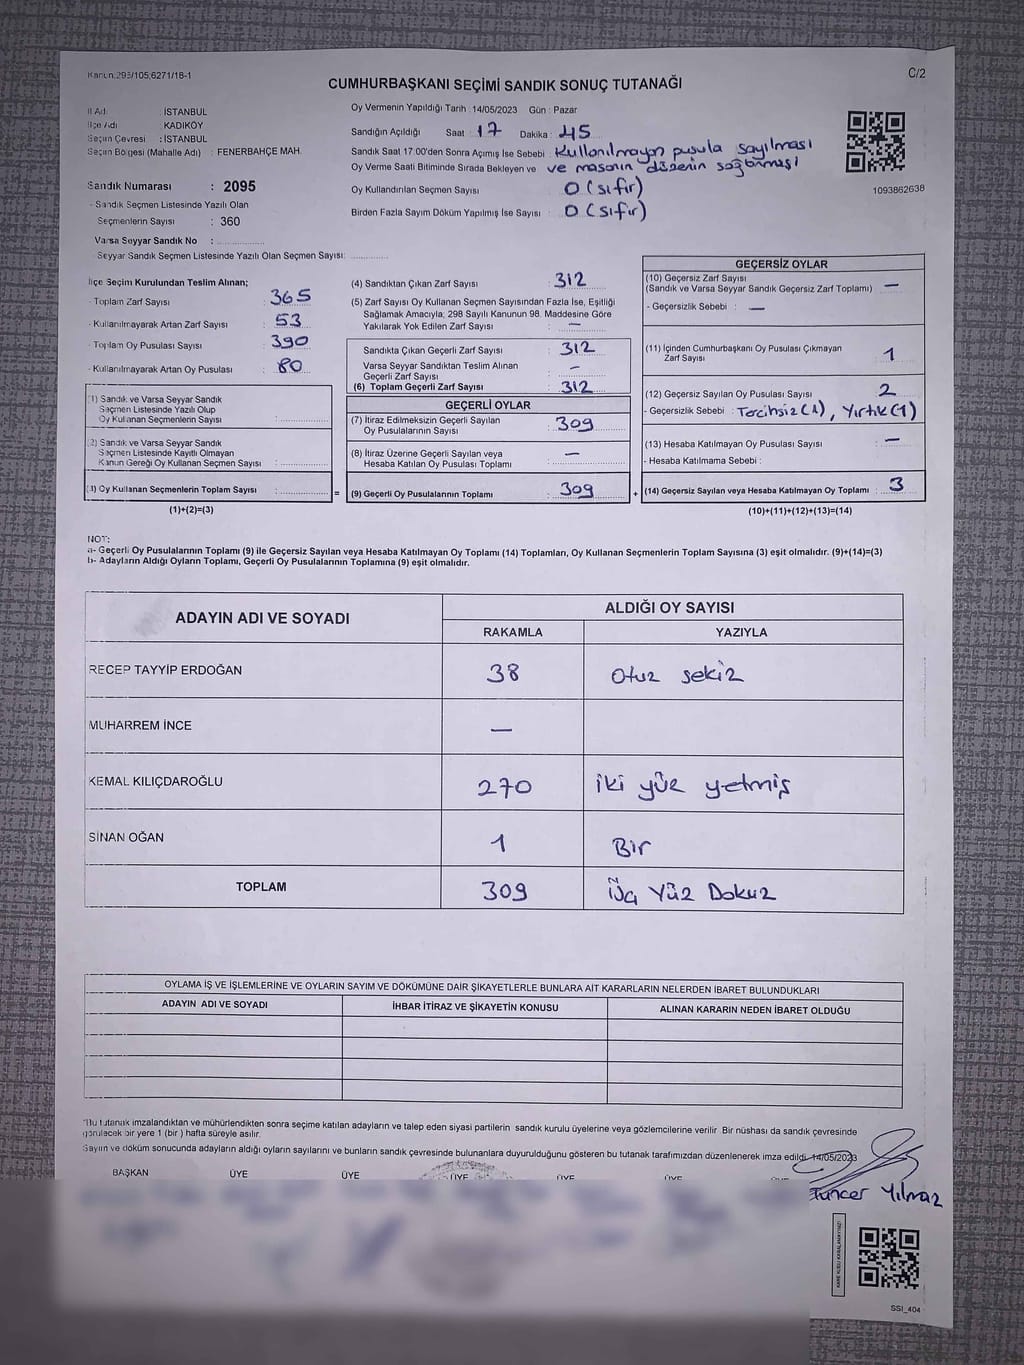 Kanun:298/105,6271/18-1
C/2
CUMHURBAŞKANI SEÇİMİ SANDIK SONUÇ TUTANAĞI
İl Adı : İSTANBUL
İlçe Adı : KADIKÖY
Seçim Çevresi : İSTANBUL
Seçim Bölgesi (Mahalle Adı) : FENERBAHÇE MAH.
Sandık Numarası : 2095
- Sandık Seçmen Listesinde Yazılı Olan
Seçmenlerin Sayısı : 360
Varsa Seyyar Sandık No :
- Seyyar Sandık Seçmen Listesinde Yazılı Olan Seçmen Sayısı:
Oy Vermenin Yapıldığı Tarih : 14/05/2023 Gün : Pazar
Sandığın Açıldığı Saat : 17 Dakika : 45
Sandık Saat 17:00'den Sonra Açımış İse Sebebi : Kullanılmayan pusula sayılması
Oy Verme Saati Bitiminde Sırada Bekleyen ve ve masanın düzenin sağlanması
Oy Kullandırılan Seçmen Sayısı 0 (sıfır)
Birden Fazla Sayım Döküm Yapılmış İse Sayısı : 0 (sıfır)
1093862638
İlçe Seçim Kurulundan Teslim Alınan;
- Toplam Zarf Sayısı : 365
- Kullanılmayarak Artan Zarf Sayısı : 53
- Toplam Oy Pusulası Sayısı : 390
- Kullanılmayarak Artan Oy Pusulası : 80
(1) Sandık ve Varsa Seyyar Sandık
Seçmen Listesinde Yazılı Olup
Oy Kullanan Seçmenlerin Sayısı :
(2) Sandık ve Varsa Seyyar Sandık
Seçmen Listesinde Kayıtlı Olmayan
Kanun Gereği Oy Kullanan Seçmen Sayısı :
(3) Oy Kullanan Seçmenlerin Toplam Sayısı :
(1)+(2)=(3)
=
(4) Sandıktan Çıkan Zarf Sayısı : 312
(5) Zarf Sayısı Oy Kullanan Seçmen Sayısından Fazla İse, Eşitliği
Sağlamak Amacıyla; 298 Sayılı Kanunun 98. Maddesine Göre
Yakılarak Yok Edilen Zarf Sayısı : —
Sandıkta Çıkan Geçerli Zarf Sayısı : 312
Varsa Seyyar Sandıktan Teslim Alınan
Geçerli Zarf Sayısı : —
(6) Toplam Geçerli Zarf Sayısı : 312
GEÇERLİ OYLAR
(7) İtiraz Edilmeksizin Geçerli Sayılan
Oy Pusulalarının Sayısı : 309
(8) İtiraz Üzerine Geçerli Sayılan veya
Hesaba Katılan Oy Pusulası Toplamı : —
(9) Geçerli Oy Pusulalarının Toplamı : 309
+
GEÇERSİZ OYLAR
(10) Geçersiz Zarf Sayısı
(Sandık ve Varsa Seyyar Sandık Geçersiz Zarf Toplamı) : —
- Geçersizlik Sebebi : —
(11) İçinden Cumhurbaşkanı Oy Pusulası Çıkmayan
Zarf Sayısı : 1
(12) Geçersiz Sayılan Oy Pusulası Sayısı : 2
- Geçersizlik Sebebi : Tercihsiz(1), Yırtık(1)
(13) Hesaba Katılmayan Oy Pusulası Sayısı : —
- Hesaba Katılmama Sebebi :
(14) Geçersiz Sayılan veya Hesaba Katılmayan Oy Toplamı : 3
(10)+(11)+(12)+(13)=(14)
NOT:
a- Geçerli Oy Pusulalarının Toplamı (9) ile Geçersiz Sayılan veya Hesaba Katılmayan Oy Toplamı (14) Toplamları, Oy Kullanan Seçmenlerin Toplam Sayısına (3) eşit olmalıdır. (9)+(14)=(3)
b- Adayların Aldığı Oyların Toplamı, Geçerli Oy Pusulalarının Toplamına (9) eşit olmalıdır.
ADAYIN ADI VE SOYADI ALDIĞI OY SAYISI
RAKAMLA YAZIYLA
RECEP TAYYİP ERDOĞAN 38 Otuz sekiz
MUHARREM İNCE —
KEMAL KILIÇDAROĞLU 270 iki yüz yetmiş
SİNAN OĞAN 1 Bir
TOPLAM 309 Üç Yüz Dokuz
OYLAMA İŞ VE İŞLEMLERİNE VE OYLARIN SAYIM VE DÖKÜMÜNE DAİR ŞİKAYETLERLE BUNLARA AİT KARARLARIN NELERDEN İBARET BULUNDUKLARI
ADAYIN ADI VE SOYADI İHBAR İTİRAZ VE ŞİKAYETİN KONUSU ALINAN KARARIN NEDEN İBARET OLDUĞU
"Bu tutanak imzalandıktan ve mühürlendikten sonra seçime katılan adayların ve talep eden siyasi partilerin sandık kurulu üyelerine veya gözlemcilerine verilir. Bir nüshası da sandık çevresinde
görülecek bir yere 1 (bir ) hafta süreyle asılır.
Sayım ve döküm sonucunda adayların aldığı oyların sayılarını ve bunların sandık çevresinde bulunanlara duyurulduğunu gösteren bu tutanak tarafımızdan düzenlenerek imza edildi. 14/05/2023
BAŞKAN ÜYE ÜYE ÜYE ÜYE ÜYE
Tuncer Yılmaz
SSI_404